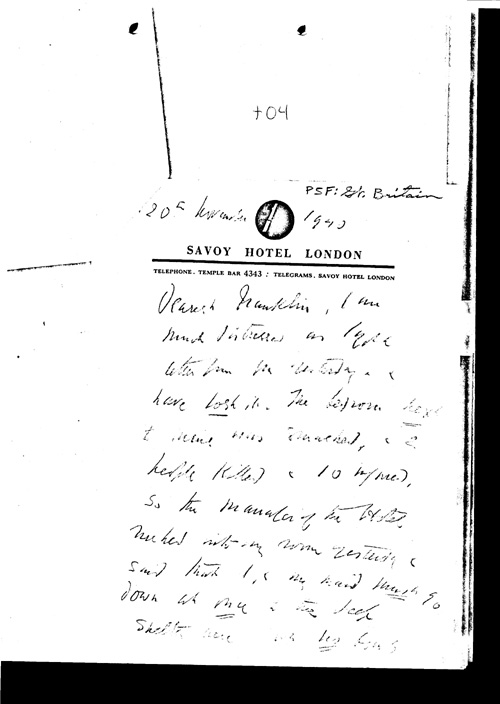 +04
PSF: Gt. Britain
20th November 1940
SAVOY HOTEL LONDON
TELEPHONE. TEMPLE BAR 4343 : TELEGRAMS. SAVOY HOTEL LONDON
Dearest Franklin, I am
much distressed as I got a
letter from you yesterday & 
have lost it. The bedroom next
to mine was smashed, & 2
people killed & 10 injured,
so the Manager of the Hotel,
rushed into my room yesterday &
said that I, & my maid must go
down at once to the deep
shelter here